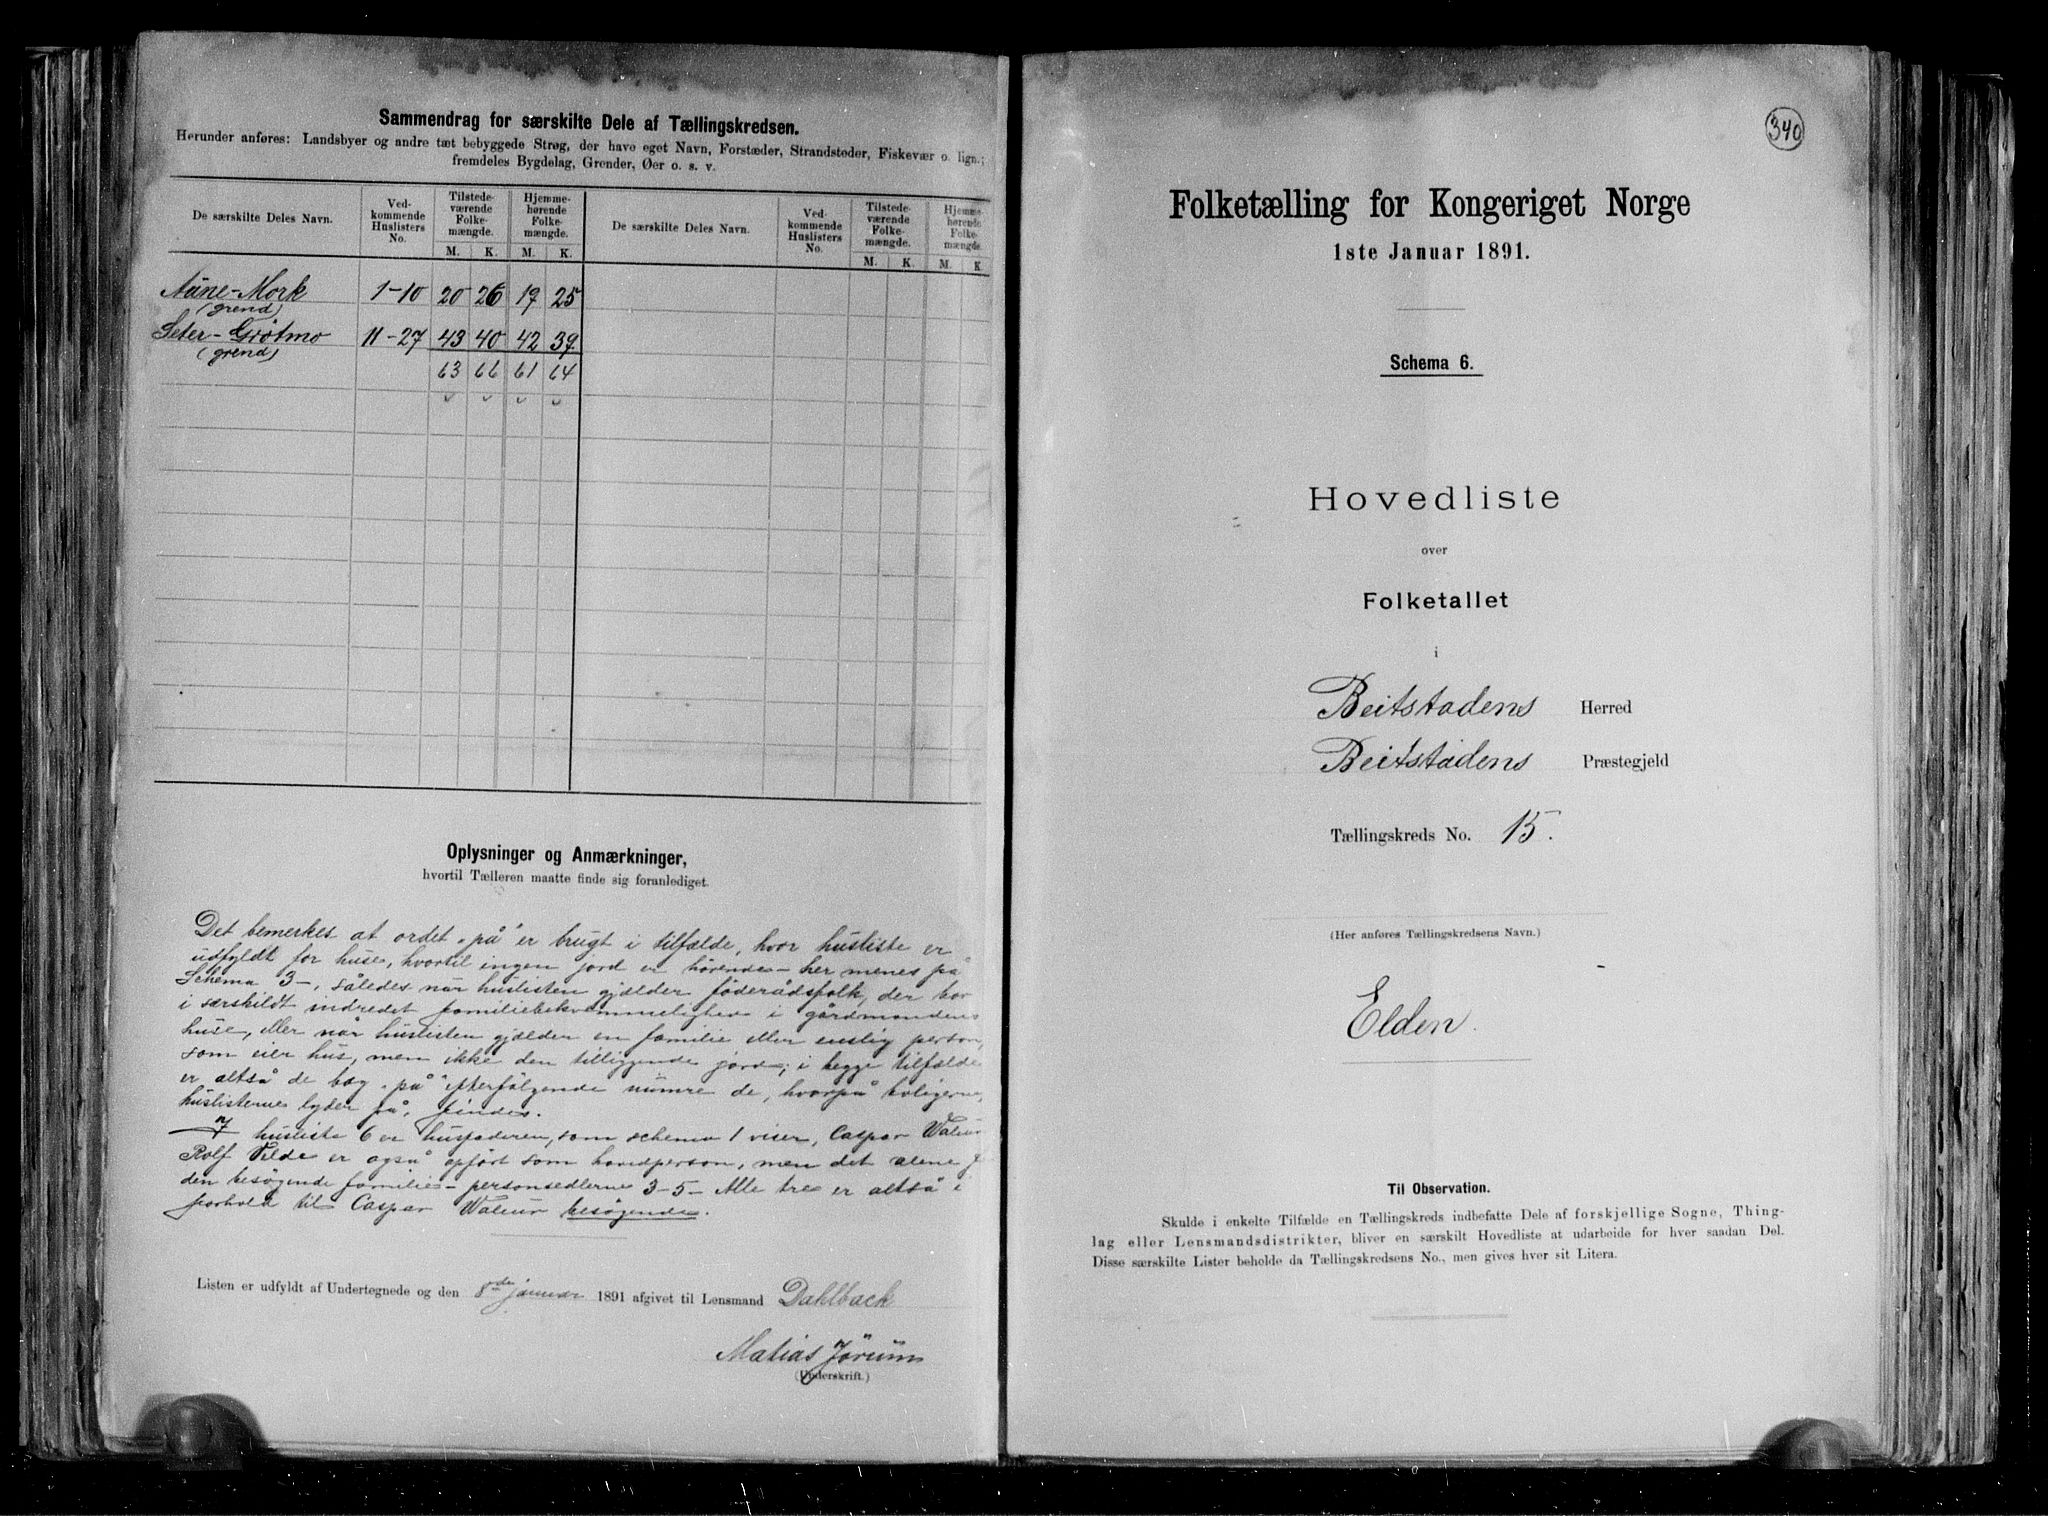 Sammendrag for særskilte Dele af Tællingskredsen.
Herunder anføres: Landsbyer og andre tæt bebyggede Strøg, der have eget Navn, Forstæder, Strandsteder, Fiskevær o. lign.;
fremdeles Bygdelag, Grender, Øer o. s. v.
De særskilte Deles Navn. Ved-kommende Huslisters No. Tilstede-værende Folke-mængde. Hjemme-hørende Folke-mængde. De særskilte Deles Navn. Ved-kommende Huslisters No. Tilstede-værende Folke-mængde. Hjemme-hørende Folke-mængde.
M. K. M. K. M. K. M. K.
Aune-Mork 1-10 20 26 19 25
(grend)
Seter-Grøtmo 11-27 43 40 42 39
(grend)
63 66 61 64
Oplysninger og Anmærkninger,
hvortil Tælleren maatte finde sig foranlediget.
Det bemerkes at ordet "på" er brugt i tilfælde, hvor husliste er
udfyldt for huse, hvortil ingen jord er hørende - her menes på
Schema 3 -, således når huslisten gjælder føderådsfolk, der bor
i særskildt indredet familiebekvemmelighed i gårdmandens
huse, eller når huslisten gjælder en familie eller enslig person,
som eier hus, men ikke den tilliggende jord; i begge tilfælde
er altså de bag "på" efterfølgende numre de, hvorpå boligerne,
huslisterne lyder på, findes.
I husliste 6 er husfaderen, som schema 1 viser, Caspar Waleur
Rolf Velde er også opført som hovedperson, men det alene f
den besøgende familie - personsedlerne 3-5 - Alle tre er altså i
forhold til Caspar Waleur besøgende.
Listen er udfyldt af Undertegnede og den 8de januar 1891 afgivet til Lensmand Dahlback
Matias Jørum
(Underskrift.)
340
Folketælling for Kongeriget Norge
1ste Januar 1891.
Schema 6.
Hovedliste
over
Folketallet
i
Beitstadens Herred
Beitstadens Præstegjeld
Tællingskreds No. 15.
(Her anføres Tællingskredsens Navn.)
Elden.
Til Observation.
Skulde i enkelte Tilfælde en Tællingskreds indbefatte Dele af forskjellige Sogne, Thing-
lag eller Lensmandsdistrikter, bliver en særskilt Hovedliste at udarbeide for hver saadan Del.
Disse særskilte Lister beholde da Tællingskredsens No., men gives hver sit Litera.